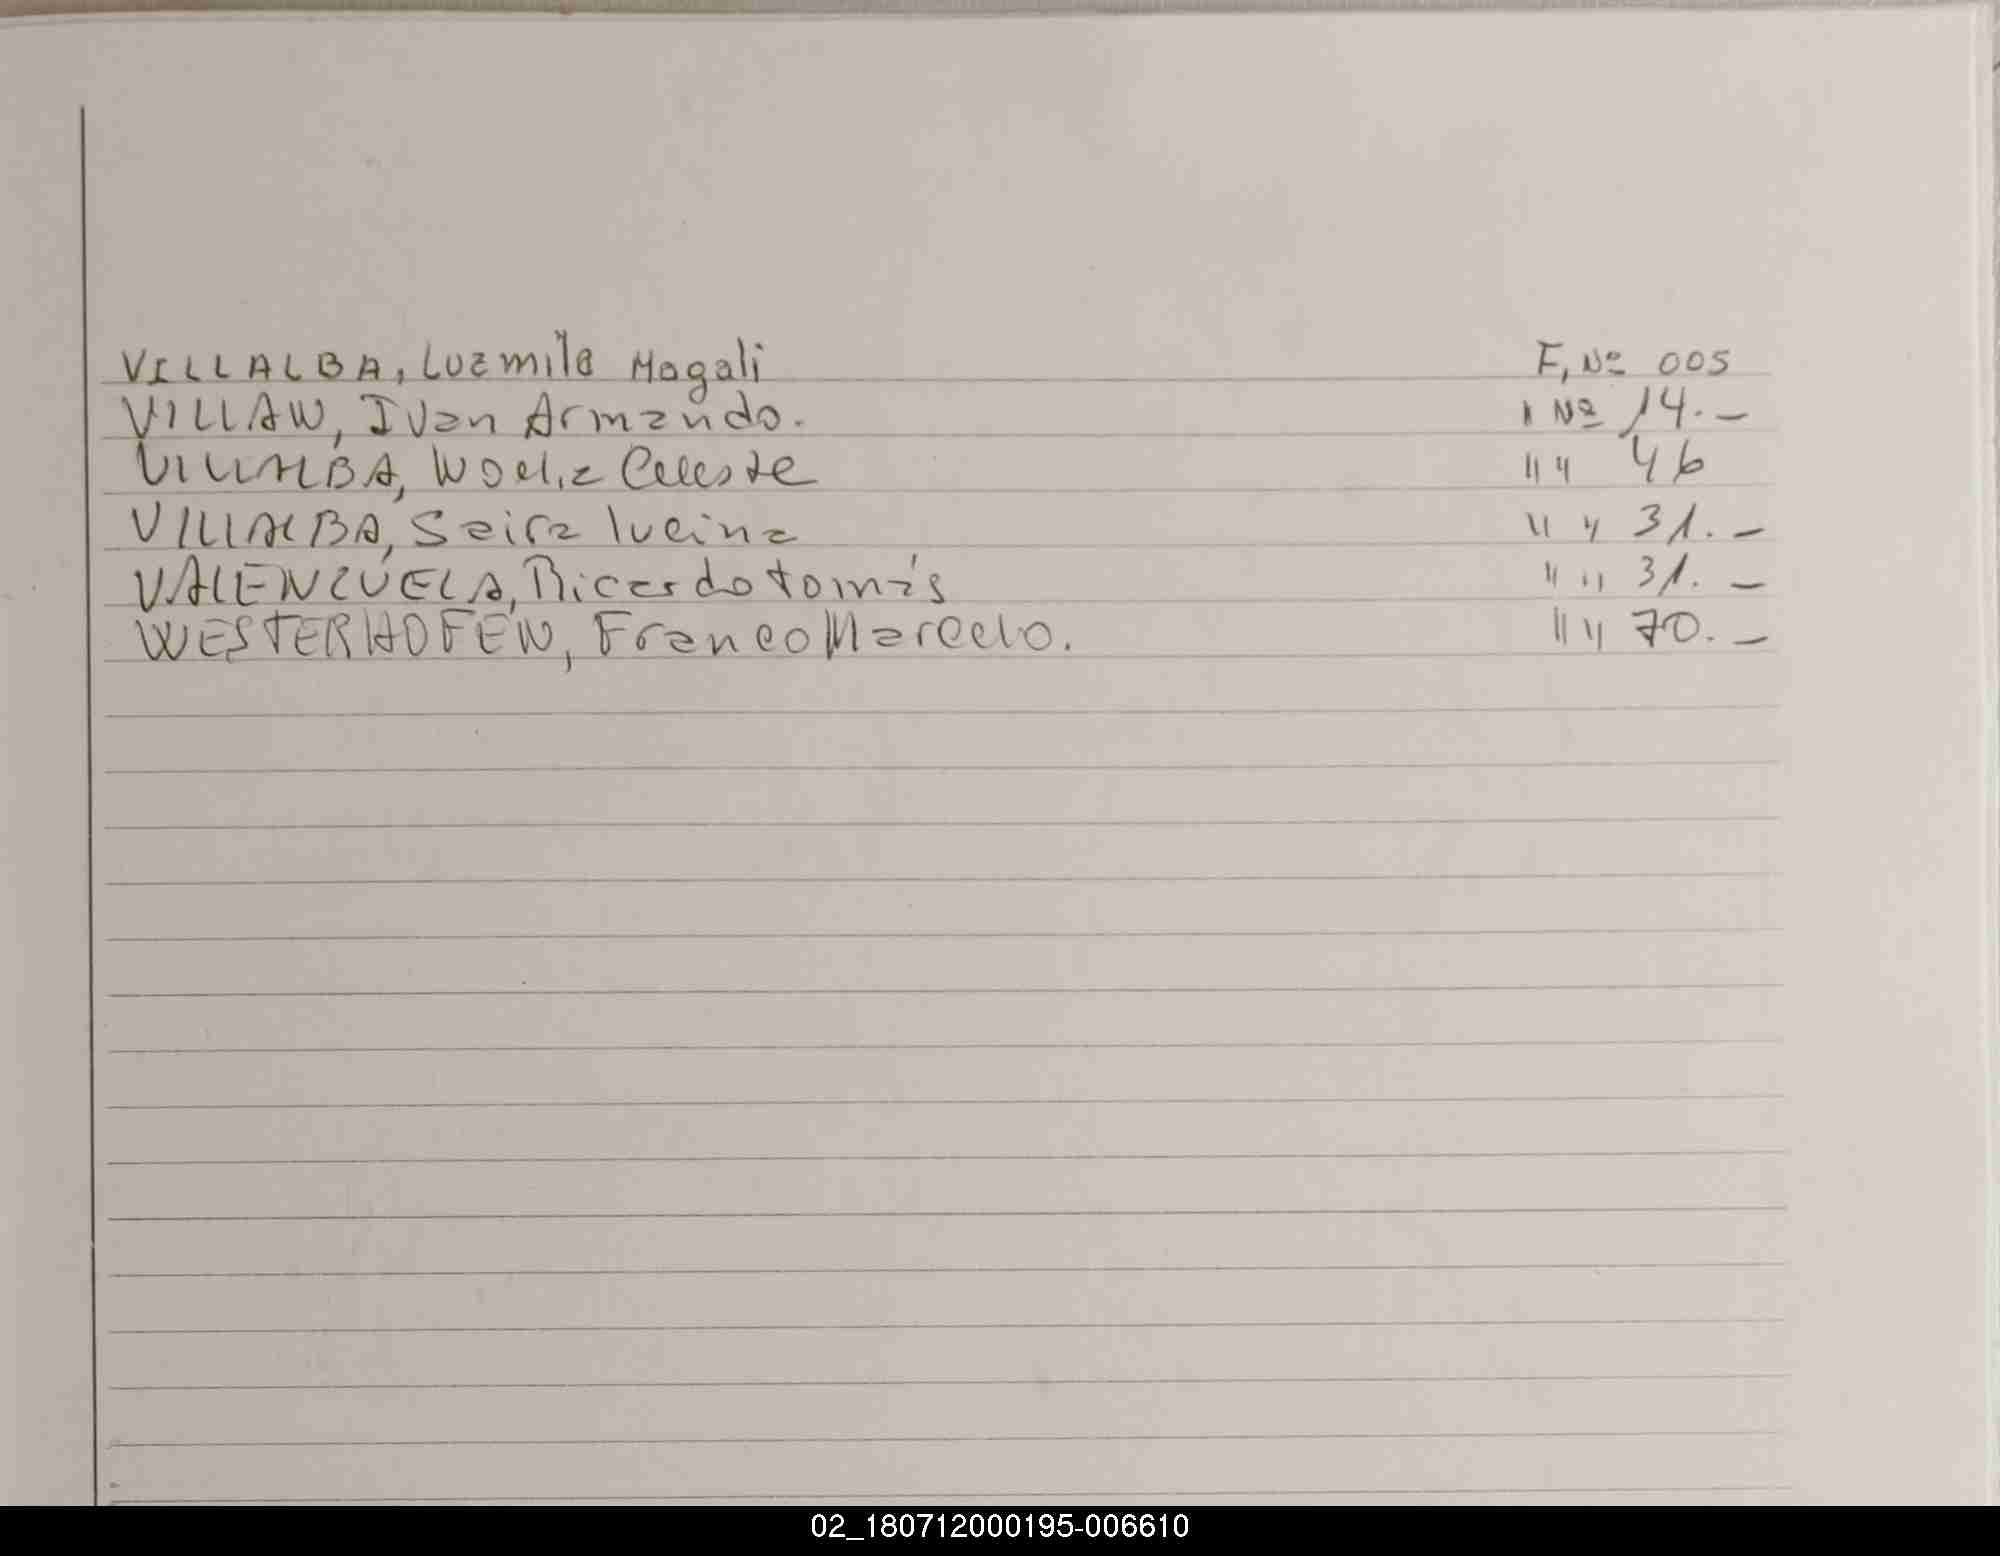 VILLALBA, Luzmila Magali F, Nº 005
VILLAW, Ivan Armando. " Nº 14. -
VILLALBA, Celeste " " 46
VILLALBA, Saira lucina " " 31. -
VALENZUELA, Ricardo tomás " " 31. -
WESTERHOFEN, Franco Marcelo. " " 70. -
02_180712000195-006610